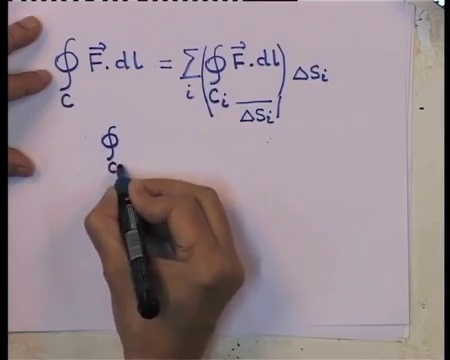 ∮_C F⃗.dl = Σ_i (∮_{C_i} F⃗.dl / ΔS_i) ΔS_i
∮_C